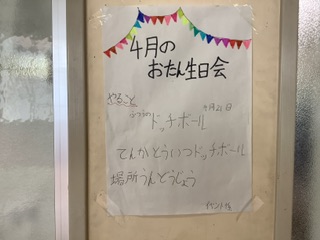 4月の
おたん生日会
やること
4月21日
ふつうの
ドッチボール
てんかとういつドッチボール
場所うんどうじょう
イベント係